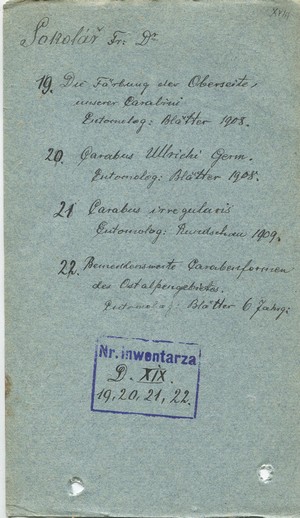 XVIII
Sokolář Fr: Dr
19. Die Färbung der Oberseite,
unserer Carabini
Entomolog: Blätter 1908.
20. Carabus Ullrichi Germ.
Entomolog: Blätter 1908.
21 Carabus irregularis
Entomolog: Rundschau 1909.
22. Bemerkenswerte Carabenformen
des Ostalpengebietes.
Entomolog: Blätter 6 Jahrg:
Nr. inwentarza
D. XIX.
19, 20, 21, 22.